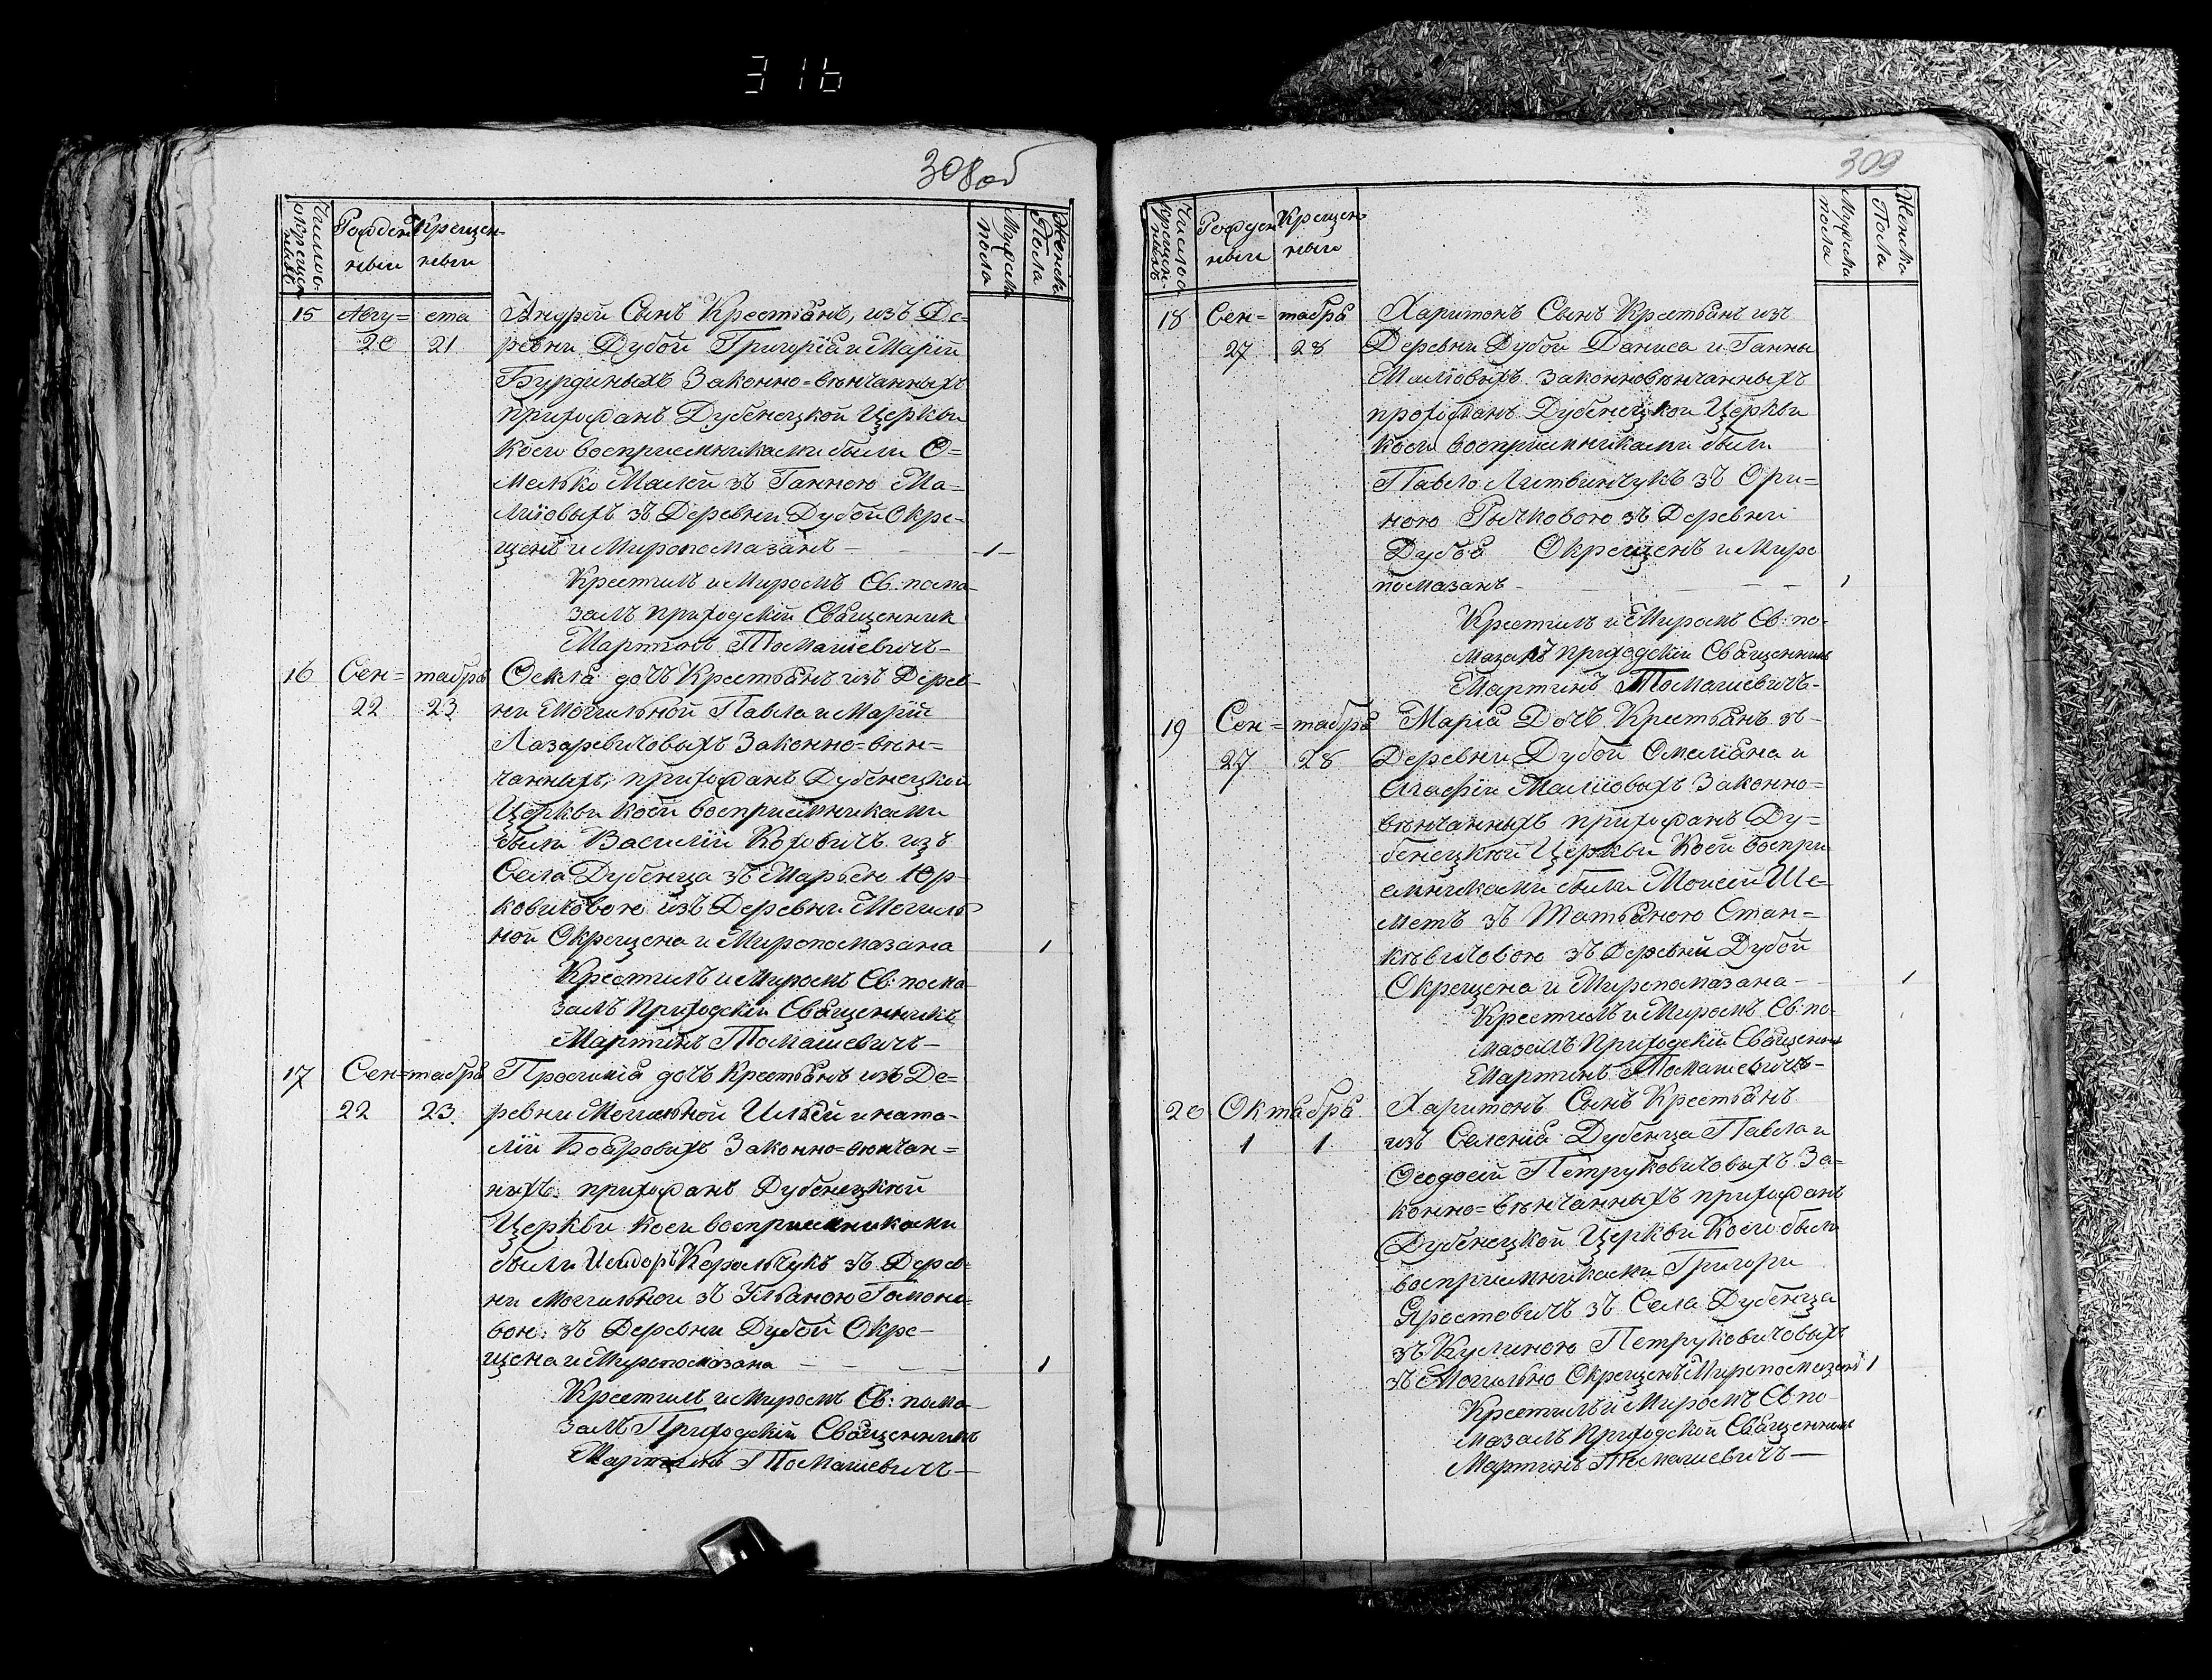 316
308об
Число
крещен
ныхъ
Рожден
ныи
Крещен
ныи
Мужска
пола
Женска
Пола
15 Авгу= ста Андрей Сынъ Крестьянъ, изъ Де=
20 21 ревни Дубой Григорія и Маріи
Бурдиныхъ Законно=вѣнчанныхъ
прихожанъ Дубенецкой Церкви
коего воспріемниками были О=
мелько Малей зъ Ганною Ма=
ліовыхъ зъ Деревни Дубой Окре-
щенъ и Миропомазанъ - 1
Крестилъ и Миромъ Св: пома
залъ приходскій Священник
Мартинъ Томашевичъ
16 Сен= табра Фекла дочъ Крестьянъ изъ Дерев-
22 23 ни Могильной Павла и Маріи
Лазаревичовыхъ Законно=вѣн=
чанныхъ, прихожанъ Дубенецкой
Церкви коей воспріемниками
были Василій изъ
Села Дубенца зъ Марьею Юр-
ковичовою изъ Деревни Могиль
ной Окрещена и Миропомазана 1
Крестилъ и Миромъ Св: пома
залъ Приходскій Священникъ
Мартинъ Томашевичъ
17 Сен=табра дочъ Крестьянъ изъ Де=
22 23 ревни Могильной Ильи и ната-
ліи Бояровихъ Законно=вѣнчан=
ныхъ. прихожанъ Дубенецкой
Церкви коей воспріемниками
были Исидоръ Корольчукъ зъ Дерев-
ни Могильной зъ Ульяною
вою. зъ Деревни Дубой Окре-
щена и Миропомазана 1
Крестилъ и Миромъ Св: пома
залъ Приходскій Священникъ
Мартинъ Томашевичъ
309
Число
крещен
ныхъ
Рожден
ныи
Крещен
ныи
Мужска
пола
Женска
Пола
18 Сен= табра Харитонъ Сынъ Крестьянъ изъ
27 28 Деревни Дубой Данила и Ганны
Маліовыхъ Законновѣнчанныхъ
прохожанъ Дубенецкой Церкви
коего воспріемниками были
Павло Литвинчукъ зъ Ори=
ною Рычковою зъ Деревни
Окрещенъ и Миро
помазанъ - 1
Крестилъ и Миромъ Св: по-
мазалъ приходскій Священникъ
Мартинъ Томашевичъ-
19 Сен= табра Марія Дочъ Крестьянъ зъ-
27 28 Деревни Дубой Омеліяна и
Агафіи Маліовыхъ Законно=
вѣнчанныхъ прихожанъ Ду=
бенецкой Церкви Коей воспрі
емниками были Моисей Ше-
метъ зъ Татьяною Стан=
кѣвичовою зъ Деревни Дубой
Окрещена и Миропомазана- 1
Крестилъ и Миромъ Св: по-
мазалъ Приходскій Священикъ
Мартинъ Томашевичъ-
20 Октября Харитонъ Сынъ Крестьянъ
1 1 изъ Селенія Дубенца Павла и
Феодосіи Петруковичовыхъ За=
конно=вѣнчанныхъ прихожанъ
Дубенецкой Церкви Коего были
воспріемниками Григори
зъ Села Дубенца
зъ Кулиною Петруковичовыхъ
зъ Могильно Окрещенъ Миропомазанъ 1
Крестилъ и Миромъ Св: по-
мазалъ Приходской Священникъ
Мартинъ Томашевичъ